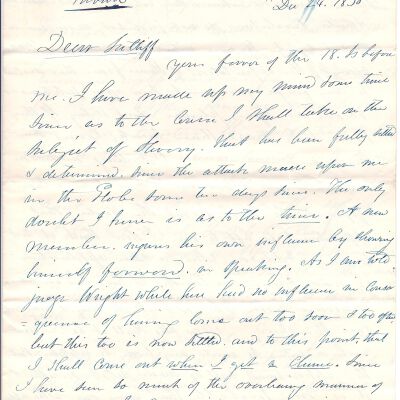 Dec 24. 1850
Dear Sutliff
Your favor of the 18. is before
me. I have made up my mind some time
since as to the course I shall take on the
subject of Slavery. That has been fully settled
& determined, since the attack made upon me
in the Globe some ten days since. The only
doubt I have is as to the time. A new
member, injures his own influence by shoving
himself forward, in speaking. As I am told
Judge Wright while here had no influence in conse
=quence of having come out too soon & too often
but this too is now settled. and to this point, that
I shall come out when I get a chance. Since
I have seen so much of the overbearing manner of